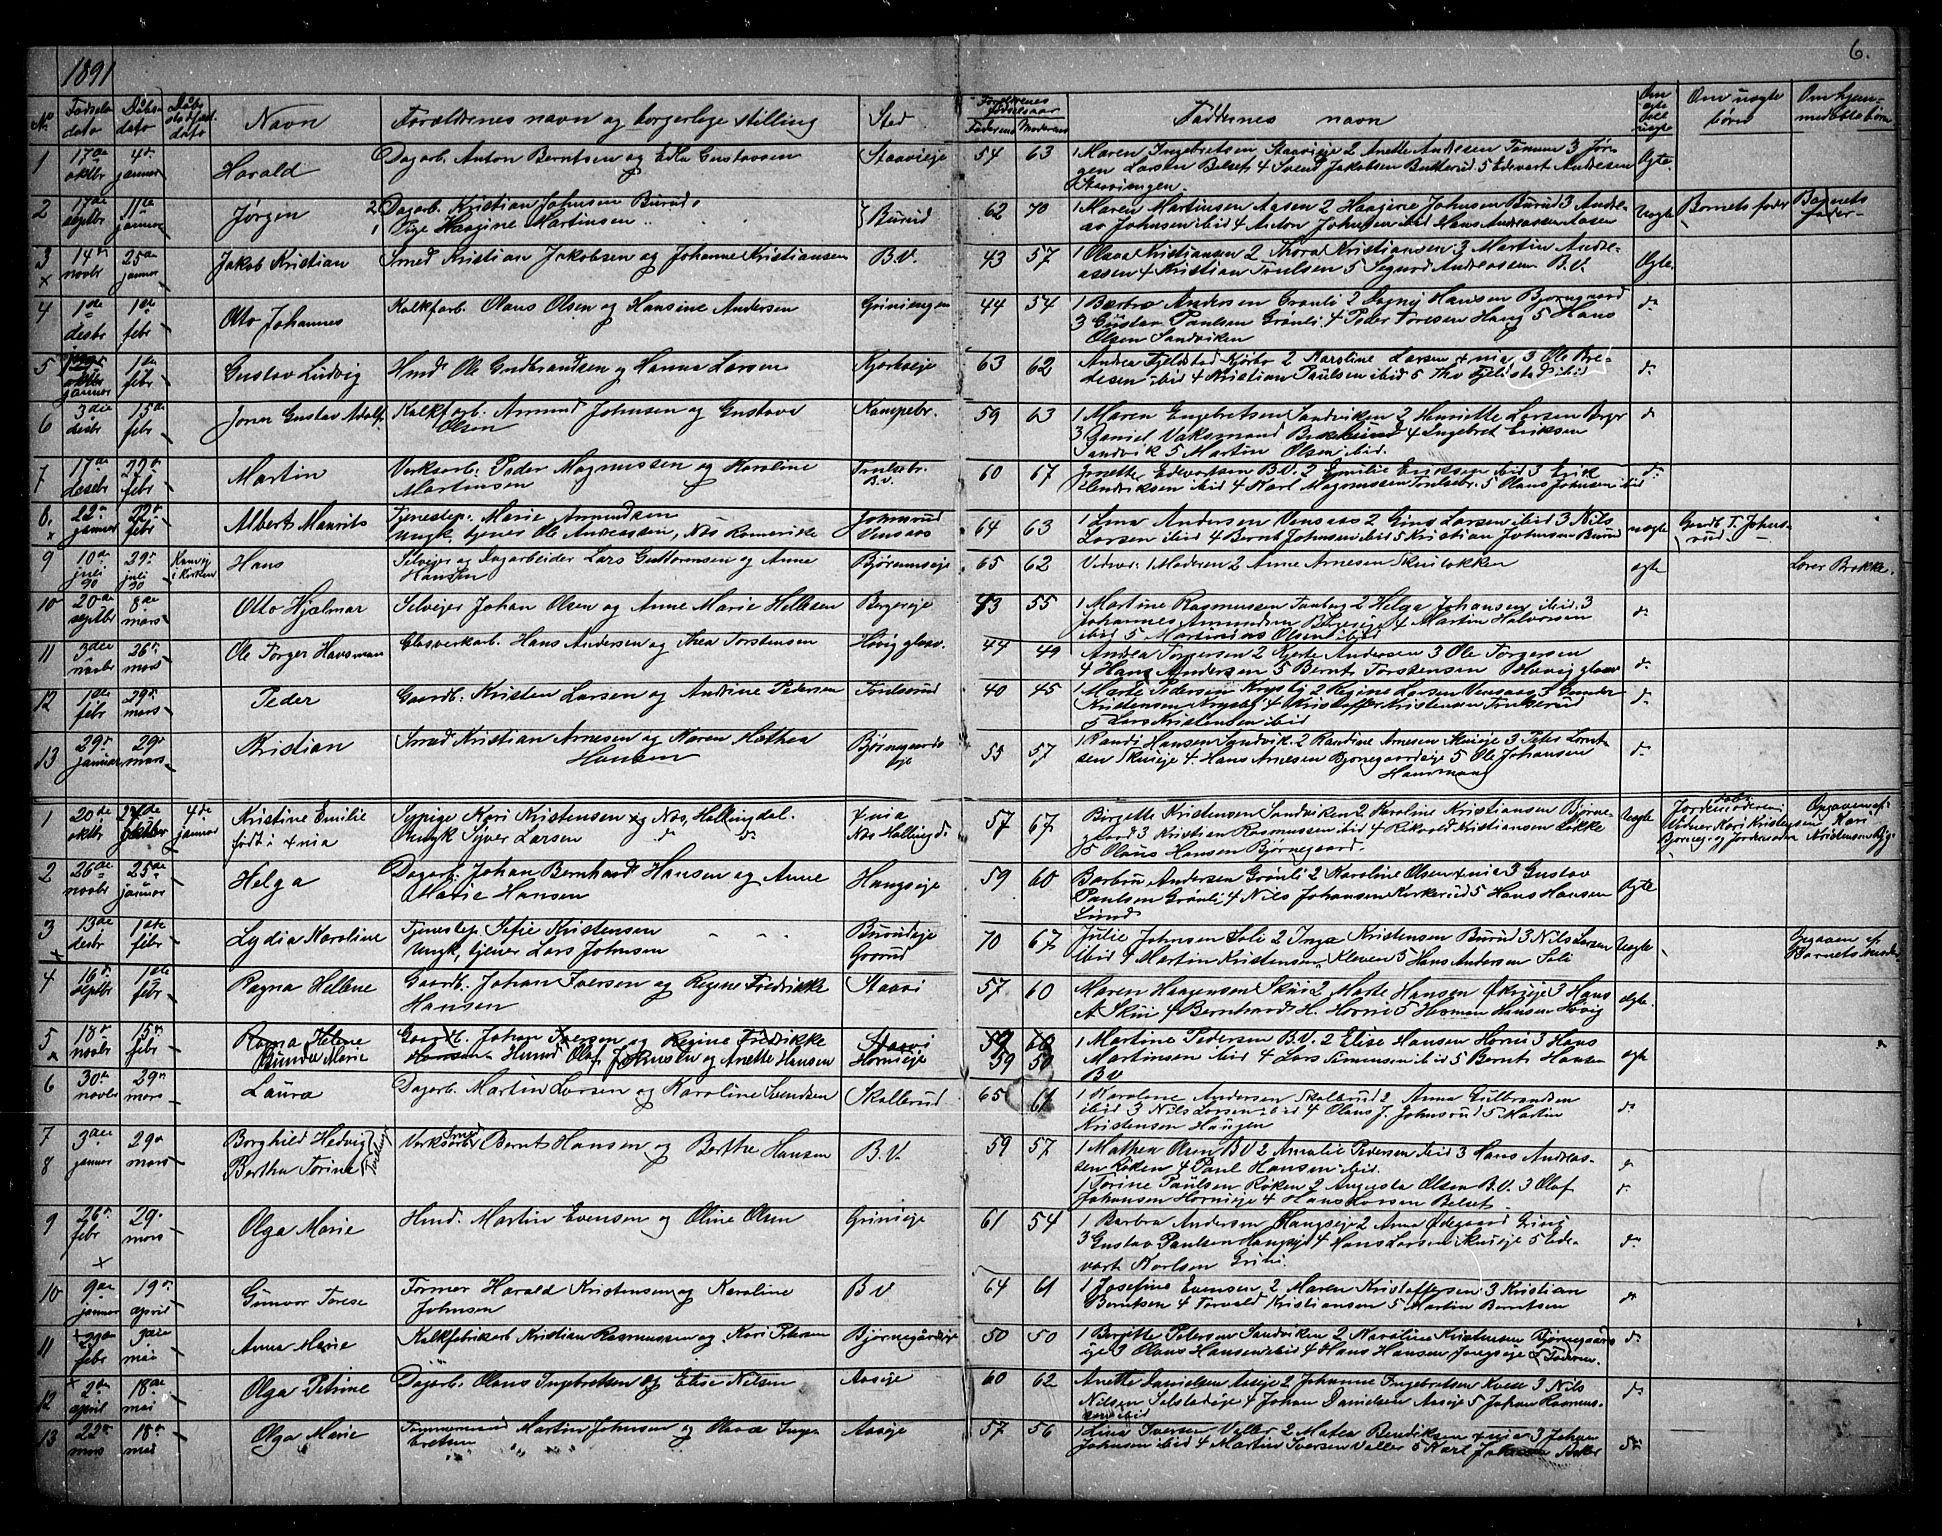 1891
6.
No Fødsels dato Dåbs dato Dåbs stadfæst. dato Navn Forældrenes navn og borgerlige stilling Sted Forældrenes fødselsaar Faderens Moderens Faddernes navn Om ægte eller uægte Om uægte børn Om hjemmedøbte børn
1 17de oktbr 4de januar Harald Dagarb. Anton Berntsen og Edla Gustavsen Staavieje 54 63 1 Maren Ingebretsen Staavieje 2 Anette Andresen Tanum 3 Jør-
gen Larsen Belset 4 Svend Jakobsen Butterud 5 Edevart Andresen
Staaviengen. Ægte.
2 17de septbr 11te januar Jørgen 2 Dagarb. Kristian Johnsen Burud
1 Pige Haagine Martinsen Burud 62 70 1 Maren Martinsen Aasen 2 Haagine Johnsen Burud 3 Andre-
as Johnsen ibid 4 Anton Johnsen ibid 5 Hans Andreassen Aasen Uægte Barnets fader Barnets fader
3 14de novbr 25de januar Jakob Kristian Smed Kristian Jakobsen og Johanne Kristiansen B.V. 43 57 1 Olava Kristiansen 2 Thora Kristiansen 3 Martin Andre-
assen 4 Kristian Poulsen 5 Segurd Andreassen B.V. Ægte.
4 1de desbr 1de febr Otto Johannes Kalkfarb. Olaus Olsen og Hansine Andersen Griniengen 44 54 1 Barbra Andersen Grønli 2 Dagny Hansen Bjørnegaard
3 Gustav Paulsen Grønli 4 Peder Toresen Haug 5 Hans
Olsen Sandviken do
5 januar 1de febr Gustav Ludvig Hmd Ole Gudbrandsen og Hanna Larsen 63 62 2 Karoline Larsen 3 Ole
4 Kristian Paulsen ibid 5 ibid do
6 3die desbr 15de febr Jonas Gustav Adolf Kalkfarb. Amund Johnsen og Gustava
Olsen Kampebr. 59 63 1 Maren Engebretsen Sandviken 2 Henriette Larsen
3 Daniel 4 Ingebret Eriksen
Sandvik 5 Martin Olsen ibid. do
7 17de desbr 22de febr Martin Verksarb. Peder Magnussen og Karoline
Martinsen B.V. 60 67 Jonette Edvartsen B.V. 2 Emilie Eriksen ibid 3 Erik
Hendriksen ibid 4 Karl Magnussen 5 Olaus Johnsen ibid do
8. 22de januar 22de febr Albert Maurits Tjenestep. Marie Amundsen
Ungk. tjener Ole Andreassen, Nes Romerike Johnsrud
Vensaas 64 63 1 Lina Andersen Vensaas 2 Gina Larsen ibid 3 Nils
Larsen ibid 4 Bernt Johnsen ibid 5 Kristian Johnsen Burud uægte Gaardb. T. Johns-
rud
9 10de juli 90 29de juli 90 i kirken Hans Selveier og Dagarbeider Lars Guttormsen og Anne
Hansen 65 62 Vidner: 1 Moderen 2 Anne Arnesen Skuiløkken ægte Lærer Brække.
10 20de septbr 8de mars Otto Hjalmar Selvejer Johan Olsen og Anne Marie Hellesen Bergeseje 43 55 1 Martine Rasmussen 2 Helga Johansen ibid. 3
Johannes Amundsen Bergseje 4 Martin Halvorsen
ibid 5 Martinius Olsen ibid do
11 3die novbr 26de mars Ole Torger Hansman Glasverkarb. Hans Andersen og Thea Torstensen Høvig glasv. 44 49 Andrea Torgersen 2 Kjerte Andersen 3 Ole Torgersen
4 Hans Andersen 5 Bernt Torstensen Høvig glasv do
12 1de febr 29de mars Peder Gaardb. Kristen Larsen og Andrine Pedersen 40 45 1 Marte Pedersen 2 Regine Larsen Vensaas 3 Gunder
Kristensen 4 Kristoffer Kristensen
5 Lars Kristensen ibid do
13 29de januar 29de mars Kristian Smed Kristian Arnesen og Karen Mathea
Hansen Bjørnegaards
eje 55 57 1 Randi Hansen Sandvik. 2 Randine Arnesen Skuieje 3 Peter Lorent-
sen Skuieje 4. Hans Arnesen Bjørnegaardseje 5 Ole Johansen
do
1 20de oktbr 4de januar Kristine Emilie
født i Pige Kari Kristensen og Nes, Hallingdal.
Ungk Syver Larsen
Nes Hallingd. 57 67 Birgitte Kristensen Sandviken 2 Karoline Kristiansen Bjørne-
gaard 3 Kristian Rasmussen ibid 4 Rikvold Kristiansen Løkke
5 Olaus Hansen Bjørnegaard. Uægte Jordemoderen
Vidner Kari Kristensen
Bjørneg. og Jordemoderen Opgaven af
Kari
Kristensen Bjg
2 26de novbr 25de januar Helga Dagarb. Johan Bernhard Hansen og Anne
Marie Hansen Haugseje 59 60 Barbra Andersen Grønli 2 Karoline Olsen 3 Gustav
Paulsen Grønli 4 Nils Johansen Kirkerud 5 Hans Hansen
Lund Ægte
3 13de desbr 1de febr Lydia Karoline Tjenestep. Sefie Kristensen
Ungk. tjener Lars Johnsen Burudeje
Grorud 70 67 Julie Johnsen Soli 2 Inga Kristensen Burud 3 Nils Larsen
ibid 4 Martin Kristensen Kleven 5 Hans Andersen Soli Uægte Opgaven af
Barnets moder
4 16de septbr 1de febr Ragna Hellene Gaardb. Johan Iversen og Regine Fredrikke
Hansen Staavi 57 60 Maren Haagensen Skui 2 Marte Hansen Økrieje 3 Hans
A Skui 4 Bernhard H. Horni 5 Herman Hansen Høvig ægte.
5 18de novbr 15de febr Ragna Helene
Marie Gaardb. Johan Iversen og Regine Fredrikke
Hansen Husmd Olaf Johnsen og Anette Hansen Staavi
Hornieje 59 60
59 50 1 Martine Pedersen B.V. 2 Elise Hansen Horni 3 Hans
Martinsen ibid 4 Lars Simensen ibid 5 Bernt Hansen
B.V ægte
6 30de novbr 29de mars Laura Dagarb. Martin Larsen og Karoline Svendsen Skallerud 65 61 1 Karoline Andersen Skallerud 2 Anna Gulbrandsen
ibid 3 Nils Larsen ibid 4 Olaus J. Johnsrud 5 Martin
Kristensen Haugen do
7
8 3die januar 29de mars Borghild Hedvig
Bertha Torine Tvillinger Verksarb. Smed Bernt Hansen og Berthe Hansen B.V. 59 57 1 Mathea Olsen B.V 2 Amalie Pedersen ibid 3 Hans Andreas-
sen Røken 4 Paul Hansen ibid.
1 Torine Paulsen Røken 2 Augusta Olsen B.V. 3 Olaf
Johansen Hornieje 4 Hans Larsen Belset do
do
9 26de febr 29de mars Olga Marie Hmd. Martin Evensen og Oline Olsen Grinieje 61 54 1 Barbra Andersen Haugseje 2 Anna Ødegaard Grini
3 Gustav Paulsen Haugseje 4 Hans Larsen Skuieje 5 Ede-
vart Karlsen Grini. do
10 9de januar 19de april Gunvor Terese Former Harald Kristensen og Karoline
Johnsen B V 64 61 1 Josefine Evensen 2 Maren Kristoffersen 3 Kristian
Berntsen 4 Torvald Kristiansen 5 Martin Berntsen do
11 febr 3die mai Anna Marie Kalkfabrikarb Kristian Rasmussen og Kari Petersen Bjørnegårdseje 50 50 1 Birgitte Petersen Sandviken 2 Karoline Kristensen Bjørnegaards
eje 3 Olaus Hansen ibid 4 Hans Hansen Jongseje 5 Faderen. do
12 2de april 18de mai Olga Petrine Dagarb. Olaus Ingebretsen og Elise Nilsen Aaseje 60 62 Anette Danielsen Aaseje 2 Johanne Ingebretsen 3 Nils
Nilsen 4 Johan Danielsen Aaseje 5 Johan Rasmus-
sen ibid do
13 22de mars 18de mai Olga Marie Tømmermand Martin Johnsen og Olava Inge-
bretsen Aaseje 57 56 1 Lina Iversen Valler 2 Matea Bendiksen 3 Johan
Johnsen ibid 4 Martin Iversen Valler 5 Karl do